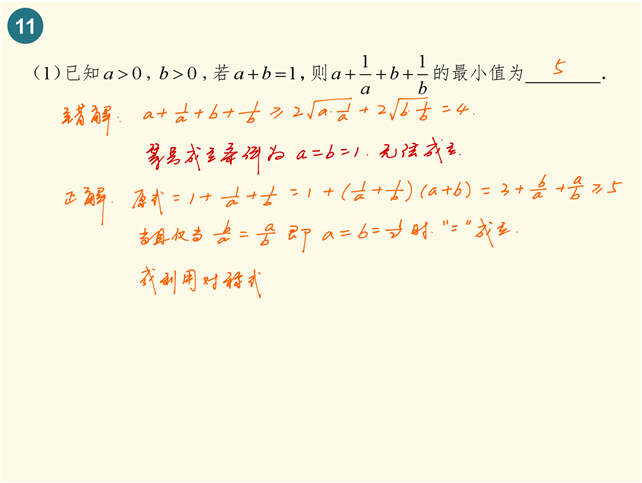 11
(1)已知a>0,b>0,若a+b=1,则a+1/a+b+1/b的最小值为 5 .
错解: a+1/a+b+1/b≥2√(a·1/a)+2√(b·1/b)=4.
等号成立条件为 a=b=1. 无法成立.
正解. 原式=1+1/a+1/b=1+(1/a+1/b)(a+b)=3+b/a+a/b≥5
当且仅当 b/a=a/b 即 a=b=1/2时. "="成立.
或利用对称式